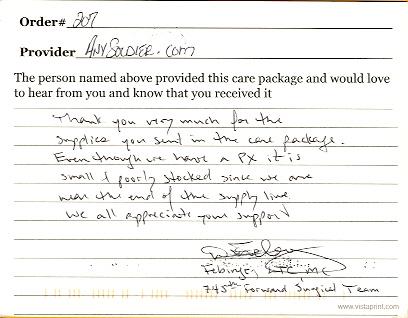 Order# 207
Provider AnySoldier.com
The person named above provided this care package and would love
to hear from you and know that you received it
Thank you very much for the
supplies you sent in the care package.
Even though we have a PX it is
small & poorly stocked since we are
near the end of the supply line.
We all appreciate your support
LTC MC
745th Forward Surgical Team
www.vistaprint.com